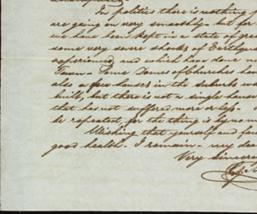 In politics there is nothing
are going on very smoothly - but for
we have been kept in a state of
some very severe shocks of Earthqu
experienced, and which have done
Town - Some Domes of Churches ha
also a few houses in the suburbs
built, but there is not a single hou
that has not suffered more or less.
be repeated, for the thing is by no m
Wishing that yourself and fam
good health. I remain - my dea
Very sincere